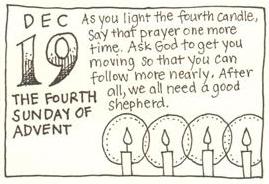 DEC
19
THE FOURTH
SUNDAY OF
ADVENT
As you light the fourth candle,
say that prayer one more
time. Ask God to get you
moving so that you can
follow more nearly. After
all, we all need a good
shepherd.